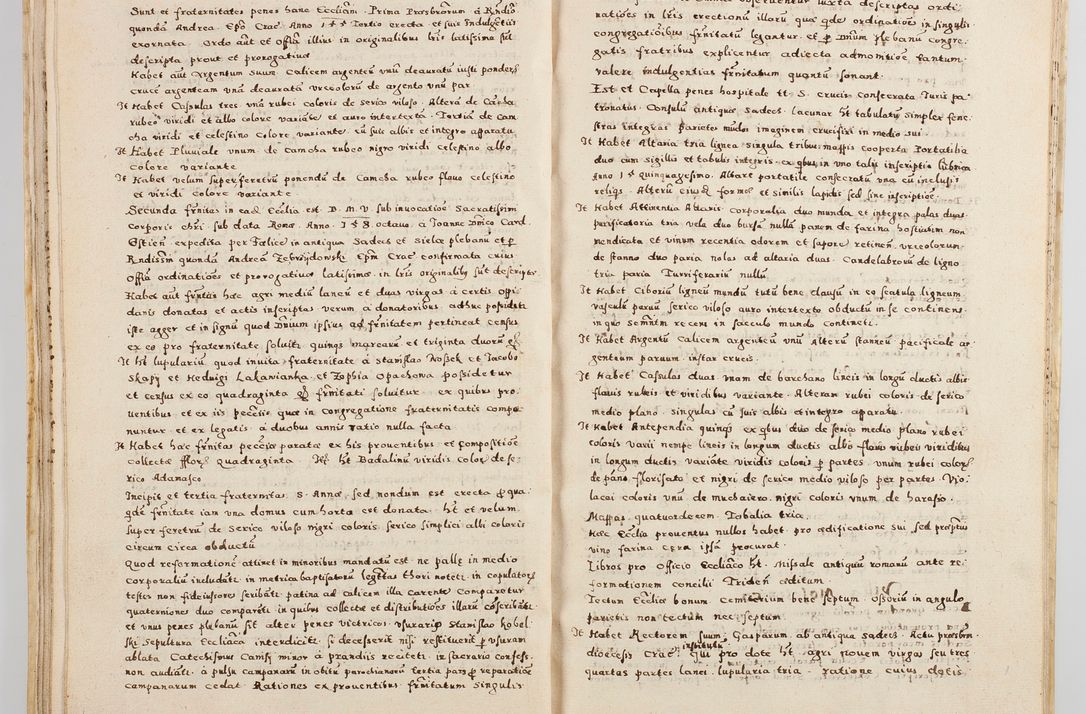 Sunt et fraternitates penes hanc Ecclīam. Prima Presbÿrorum á Rndīo
quondā Andrea Epō Crac. Anno 155 tertio erecta et suis Indulgētiis
exornata. Ordo aūt et offīa illius in originalibus lris latissime sūt
descripta prout et prorogativæ
Habet aūt Argentum suum. Calicem argenteū vnū deauratū iusti ponderis
crucē argenteam vnā deauratā vrceolorū de argento vnū par
It Habet Casulas tres vnā rubei coloris de serico viloso. Alterā de Camcha
rubeo viridi et albo colore variāte et auro intertextā. Tertiā de cam
cha viridi et celestino colore variante cū suis albis et integro apparatu
It Habet Pluviale vnum de camcha rubeo nigro viridi celestino albo
colore variante
It Habet velum super feretrū ponendū de Camcha rubeo flauo celestino
et viridi colore variante
Secunda frnitas in eadē Ecclīa est B. M. V. sub inuocatione Sacratissim
Corporis chri sub data Romæ Anno. 158 octauo a Ioanne Dnico Card.
Estien expedita per Felice in antiqua Sadecs et Sielce plebanū et per
Rndissm quondā Andreā Zebrzydowski Epm Crac confirmata cuius
offīa ordinatiōes et prorogatiuæ latissimæ in lris originalibus sūt descriptæ
Habet aūt frnitas hæc agri mediū laneū et duas virgas à certis oppi
danis donatas et actis inscriptas verum à donatoribus adhuc possideti
iste agger et in signū quod Dnium ipsius ad frnitatem pertineat census
ex eo pro fraternitate soluiti quinqs marcarū et triginta duorū gr
It ht lupulariū quod invita fraternitate à Stanislao Noszek et Iacobo
Skopÿ et Heduigi Lakawianka et Zophia Opachowa possidetur
et census ex eo quadraginta gr frnitati soluitur ex quibus pro
uentibus et ex iis peccīis quæ in congregatione fraternitatis compo
nuntur et ex legatis à duobus annis ratio nulla facta
It Habet hæc frnitas peccīa parata ex his prouentibus et compositiōe
collecta florꝫ quadraginta. Itē ht Badalinū viridis color de se
rico Adamasco
Incipit et tertia fraternitas S. Annæ sed nondum est erecta pro qua
qde frnitate iam vna domus cum horto est donata. ht et velum
super feretrū de serico viloso nigri coloris serico simplici albi coloris
circum circa obductū
Quod reformationē attinet in minoribus mandatū est ne pallæ in medio
corporaliū includāt in metrica baptisatorū legittimi thori notet in copulatorū
testes non fideiussores scribāt patina ad calicem illa carente Comparetur
quaterniones duo comparēt in quibus collectæ et distributiōes illarū coscribāt
et vnus penes plebanū sit alter penes victricos vsurario Stanislao Kobel
ski sepultura Ecclīaca interdicit si decesserit nisi restituerit per vsuram
ablata Catechismus Canisy minor á prandiis recitet in sacrario confess.
non audiāt à pulsu campanarū in obitu parochianorū tertia pars pro reparatiōe
campanarum cedat Rationes ex prouentibus frnitatum singulis
obseruentur iuxta descriptas ordi
natiōes in lris erectionū illarū quæ qde ordinatiōes in singulis
congregatiōibus frnitatū legantur et per Dnum plebanū congre
gatis fratribus explicentur adiecta admonitiōe tantum
valere indulgentias frnitatum quantū sonant
Est et Capella penes hospitale tt. S. crucis consecrata Iuris pa
tronatus Consulū antiquæ Sadecs lacunar ht tabulatū simplex fene
stras integras parietes mūdos imaginem crucifixi in medio sui
It Habet Altaria tria lignea singula tribus mappis cooperta Portatilia
duo cum sigillis et tabulis integris ex qbus in vno talis inscriptio lubrica
Anno 15 quinquagesimo. Altare portatile consecratū vna cū inclusis
reliqs Alterū eiusdē formæ et similis lapidis sed sine inscriptiōe
It Habet Attinentia Altaris. Corporalia duo munda et integra palas duas
purificatoria tria vela duo bursā nullā panem de farina hostiarum non
mendicata et vinum recentia odorem et sapore retinen. vrceolorum
de stanno duo paria nolas ad altaria duas Candelabrorū de ligno
tria paria Turriferariū nullū
It Habet Ciboriū ligneū mundū tutū bene clausū in eo scatula ligneum
vasculū paruū serico viloso auro intertexto obductū in se continens
in quo semntm recens in sacculo mundo contineti
It Habet Argentū Calicem argenteū vnū Alterū stanneū pacificale ar
genteum paruum instar crucis
It Habet Casulas duas vnam de barchano lineis in longū ductis albis
flauis rubeis et viridibus variante. Alteram rubei coloris de serico
medio plano singulas cū suis albis et integro apparatu
It Habet Antependia quinqs ex qbus duo de serico medio plano rubei
coloris varii nempe lineis in longum ductis albo flauis rubeis viridibus
in longum ductis variāte viridis coloris per partes vnum rubei coloris
de pano florisato et nigri de serico medio viloso per partes Vio.
lacei coloris vnū de muchaiero nigri coloris vnum de harasio
Mappas quatuordecem. Tobalia tria.
Hæc Ecclīa prouentus nullos habet pro ædificatione sui sed præptus
vino farina cera ipsā procurat.
Libros pro Officio Ecclīaco ht. Missale antiquū romanū ante re
formationem Concilii Triden æditum
Tectum Ecclīæ bonum Cemiterium bene septum. Ossoriū in angulo
parietis non tectum nec septum
It Habet Rectorem suum Gasparum ab antiqua Sadecs Actu presbrm
diœcesis Crac institutū qui pro dote ht agri nouem virgas seu tres
quartas partes lanei lupularia tria ratione cuius dotis